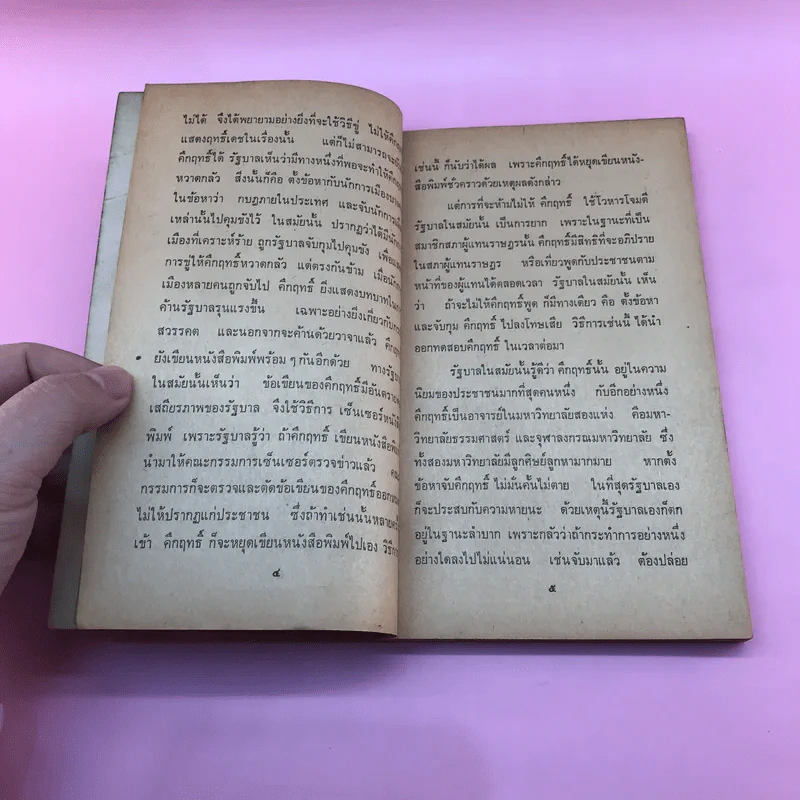 ไม่ได้ จึงได้พยายามอย่างยิ่งที่จะใช้วิธีขู่ ไม่ให้คึกฤท
แสดงฤทธิ์เดชในเรื่องนั้น แต่ก็ไม่สามารถจะ
คึกฤทธิ์ได้ รัฐบาลเห็นว่ามีทางหนึ่งที่พอจะทำให้คึก
หวาดกลัว สิ่งนั้นก็คือ ตั้งข้อหากับนักการเมือง
ในข้อหาว่า กบฏภายในประเทศ และจับนักการเมือง
เหล่านั้นไปคุมขังไว้ ในสมัยนั้น ปรากฏว่าได้มีนัก
เมืองที่เคราะห์ร้าย ถูกรัฐบาลจับกุมไปคุมขัง เพื่อ
การขู่ให้คึกฤทธิ์หวาดกลัว แต่ตรงกันข้าม เมื่อนัก
เมืองหลายคนถูกจับไป คึกฤทธิ์ ยิ่งแสดงบทบาทใน
ค้านรัฐบาลรุนแรงขึ้น เฉพาะอย่างยิ่งเกี่ยวกับ
สวรรคต และนอกจากจะค้านด้วยวาจาแล้ว คึกฤ
ยังเขียนหนังสือพิมพ์พร้อม ๆ กันอีกด้วย ทางรัฐบ
ในสมัยนั้นเห็นว่า ข้อเขียนของคึกฤทธิ์มีอันตราย
เสถียรภาพของรัฐบาล จึงใช้วิธีการ เซ็นเซอร์หนัง
พิมพ์ เพราะรัฐบาลรู้ว่า ถ้าคึกฤทธิ์ เขียนหนังสือพิม
นำมาให้คณะกรรมการเซ็นเซอร์ตรวจข่าวแล้ว คณ
กรรมการก็จะตรวจและตัดข้อเขียนของคึกฤทธิ์ออก
ไม่ให้ปรากฏแก่ประชาชน ซึ่งถ้าทำเช่นนั้นหลาย
เข้า คึกฤทธิ์ ก็จะหยุดเขียนหนังสือพิมพ์ไปเอง วิธีก
๔
เช่นนี้ ก็นับว่าได้ผล เพราะคึกฤทธิ์ได้หยุดเขียนหนัง-
สือพิมพ์ชั่วคราวด้วยเหตุผลดังกล่าว
แต่การที่จะห้ามไม่ให้ คึกฤทธิ์ ใช้โวหารโจมตี
รัฐบาลในสมัยนั้น เป็นการยาก เพราะในฐานะที่เป็น
สมาชิกสภาผู้แทนราษฎรนั้น คึกฤทธิ์มีสิทธิที่จะอภิปราย
ในสภาผู้แทนราษฎร หรือเที่ยวพูดกับประชาชนตาม
หน้าที่ของผู้แทนได้ตลอดเวลา รัฐบาลในสมัยนั้น เห็น
ว่า ถ้าจะไม่ให้คึกฤทธิ์พูด ก็มีทางเดียว คือ ตั้งข้อหา
และจับกุม คึกฤทธิ์ ไปลงโทษเสีย วิธีการเช่นนี้ ได้นำ
ออกทดสอบคึกฤทธิ์ ในเวลาต่อมา
รัฐบาลในสมัยนั้นรู้ดีว่า คึกฤทธิ์นั้น อยู่ในความ
นิยมของประชาชนมากที่สุดคนหนึ่ง กับอีกอย่างหนึ่ง
คึกฤทธิ์เป็นอาจารย์ในมหาวิทยาลัยสองแห่ง คือมหา-
วิทยาลัยธรรมศาสตร์ และจุฬาลงกรณมหาวิทยาลัย ซึ่ง
ทั้งสองมหาวิทยาลัยมีลูกศิษย์ลูกหามากมาย หากตั้ง
ข้อหาจับคึกฤทธิ์ ไม่มั่นคั้นไม่ตาย ในที่สุดรัฐบาลเอง
ก็จะประสบกับความหายนะ ด้วยเหตุนี้รัฐบาลเองก็ตก
อยู่ในฐานะลำบาก เพราะกลัวว่าถ้ากระทำการอย่างหนึ่ง
อย่างใดลงไปไม่แน่นอน เช่นจับมาแล้ว ต้องปล่อย
๕